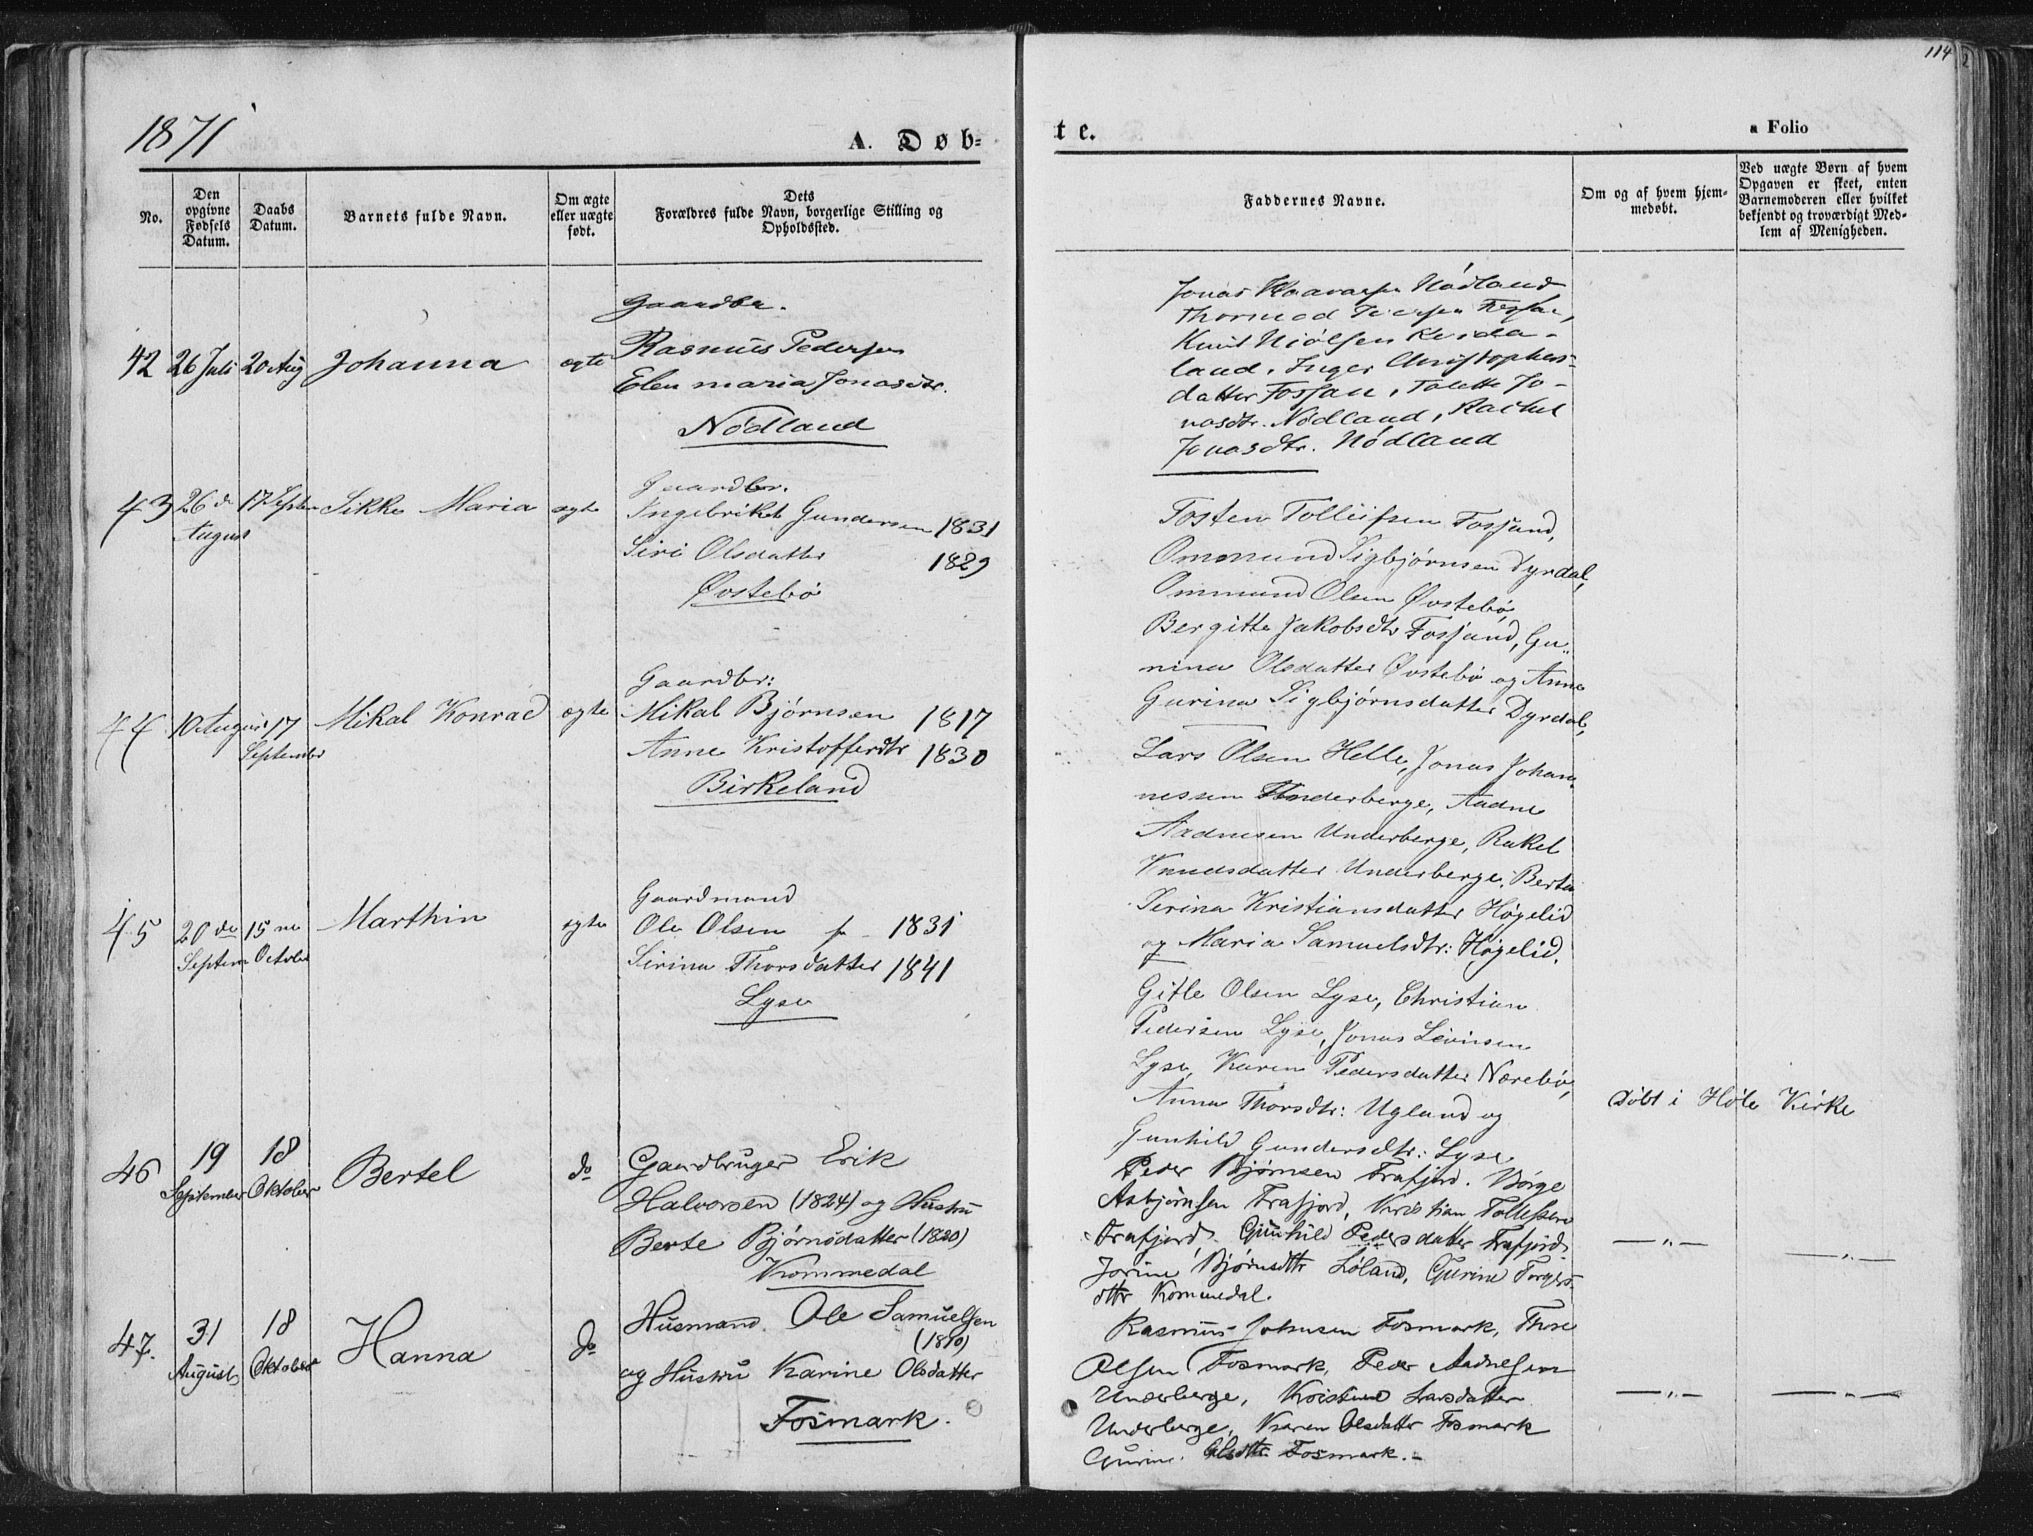 114
1871
A. Døb-
te.
a Folio
No.
Den opgivne Fødsels Datum.
Daabs Datum.
Barnets fulde Navn.
Om ægte eller uægte født.
Dets Forældres fulde Navn, borgerlige Stilling og Opholdssted.
Faddernes Navne.
Om og af hvem hjemmedøbt.
Ved uægte Børn af hvem Opgaven er skeet, enten Barnemoderen eller hvilket bekjendt og troværdigt Medlem af Menigheden.
42 26 Juli 20 Aug Johanna ægte
Gaardbr.
Rasmus Pedersen
Elen maria Jonasdtr.
Nødland
Jonas Nødland
Thormod Fossan,
Knud Niölsen
land, Inger Christophers-
datter Fossan, Talette Jo-
nasdtr. Nödland, Rachel
Jonasdtr. Nödland
43 26 de August 17 Septem Sikke Maria ægte
Gaardbr.
Ingebrikt Gundersen 1831
Siri Olsdatter 1829
Øvstebö
Tosten Tolleifsen Fosjand,
Ommund Sigbjørnsen Dyrdal,
Ommund Olsen Øvstebö,
Bergitte Jakobsdtr Fosjand, Gu-
nina Olsdatter Øvstebö og Anne
Gurina Sigbjørnsdatter Dyrdal,
44 10 August 17 September Mikal Konrad ægte
Gaardbr:
Mikal Bjørnsen 1817
Anne Kristofferdtr 1830
Birkeland
Lars Olsen Helle, Jonas Johan-
nessen Underberge, Aadne
Aadnesen Underberge, Rakel
Knudsdatter Underberge, Berta
Serina Kristiansdatter Høgelid
og Maria Samuelsdtr: Høgelid.
45 20 de Septem 15 ne October Marthin ægte
Gaardmand
Ole Olsen f 1831
Sirina Thorsdatter 1841
Lyse
Gitle Olsen Lyse, Christian
Pedersen Lyse, Jonas Levinsen
Lyse, Karen Pedersdatter Nærebö,
Anna Thorsdtr: Ugland og
Gunhild Gundersdtr: Lyse
Döbt i Høle Kirke
46 19 September 18 Oktober Bertel do
Gaardbruger Erik
Halvorsen (1824) og Hustru
Berte Bjørnsdatter (1830)
Kommedal
Peder Bjørnsen Frafjord. Börge
Asbjørnsen Frafjord, Kristian Tollefsen
Frafjord, Gunhild Pedersdatter Frafjord
Jorine Bjørnsdtr Løland, Gurine Torgers-
dtr Kommedal.
— „ —
— „ —
47. 31 August 18 Oktober Hanna do
Husmand Ole Samuelsen
(1810)
og Hustru Karine Olsdatter
Fosmark.
Rasmus Johnsen Fosmark, Thore
Olsen Fosmark, Peder Aadnesen
Underberge, Kristine Larsdatter
Underberge, Karen Olsdatter Fosmark
Gurine Olsdtr. Fosmark.-
— „ —
— „ —